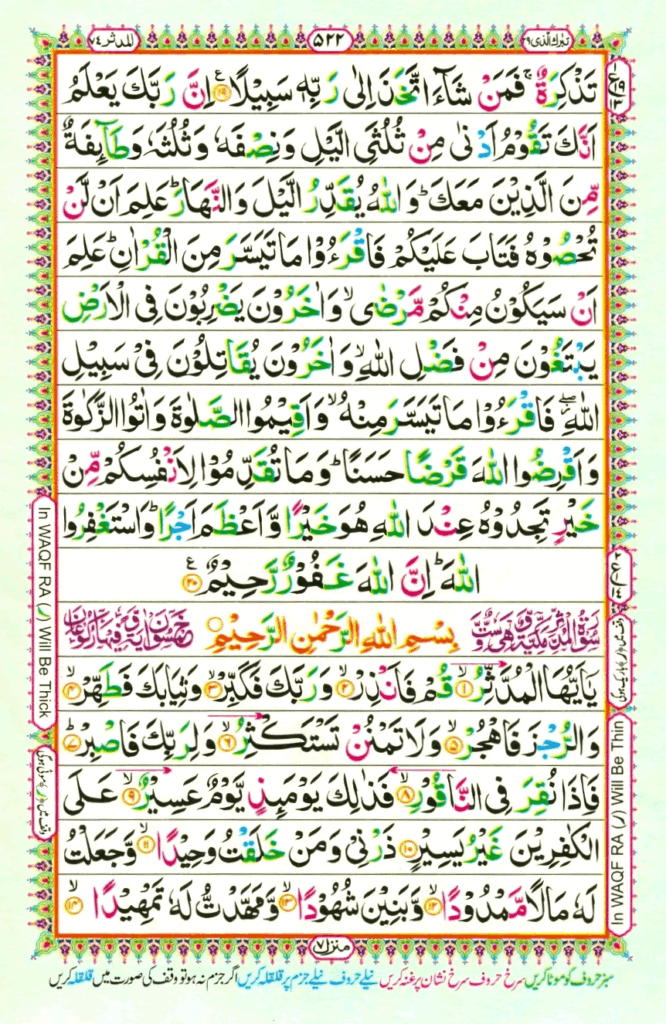 المدثر ٧٤
٥٢٢
تبٰرك الذی ٢٩
تَذْكِرَةٌ ۚ فَمَنْ شَآءَ اتَّخَذَ اِلٰى رَبِّهٖ سَبِيْلًا ﴿١٩﴾ اِنَّ رَبَّكَ يَعْلَمُ
اَنَّكَ تَقُوْمُ اَدْنٰى مِنْ ثُلُثَيِ الَّيْلِ وَنِصْفَهٗ وَثُلُثَهٗ وَطَآئِفَةٌ
مِّنَ الَّذِيْنَ مَعَكَ ؕ وَاللّٰهُ يُقَدِّرُ الَّيْلَ وَالنَّهَارَ ؕ عَلِمَ اَنْ لَّنْ
تُحْصُوْهُ فَتَابَ عَلَيْكُمْ فَاقْرَءُوْا مَا تَيَسَّرَ مِنَ الْقُرْاٰنِ ؕ عَلِمَ
اَنْ سَيَكُوْنُ مِنْكُمْ مَّرْضٰى ۙ وَاٰخَرُوْنَ يَضْرِبُوْنَ فِى الْاَرْضِ
يَبْتَغُوْنَ مِنْ فَضْلِ اللّٰهِ ۙ وَاٰخَرُوْنَ يُقَاتِلُوْنَ فِيْ سَبِيْلِ
اللّٰهِ ۖ فَاقْرَءُوْا مَا تَيَسَّرَ مِنْهُ ۙ وَاَقِيْمُوا الصَّلٰوةَ وَاٰتُوا الزَّكٰوةَ
وَاَقْرِضُوا اللّٰهَ قَرْضًا حَسَنًا ؕ وَمَا تُقَدِّمُوْا لِاَنْفُسِكُمْ مِّنْ
خَيْرٍ تَجِدُوْهُ عِنْدَ اللّٰهِ هُوَ خَيْرًا وَّاَعْظَمَ اَجْرًا ؕ وَاسْتَغْفِرُوا
اللّٰهَ ؕ اِنَّ اللّٰهَ غَفُوْرٌ رَّحِيْمٌ ﴿٢٠﴾
بِسْمِ اللّٰهِ الرَّحْمٰنِ الرَّحِيْمِ
يٰۤاَيُّهَا الْمُدَّثِّرُ ﴿١﴾ قُمْ فَاَنْذِرْ ﴿٢﴾ وَرَبَّكَ فَكَبِّرْ ﴿٣﴾ وَثِيَابَكَ فَطَهِّرْ ﴿٤﴾
وَالرُّجْزَ فَاهْجُرْ ﴿٥﴾ وَلَا تَمْنُنْ تَسْتَكْثِرُ ﴿٦﴾ وَلِرَبِّكَ فَاصْبِرْ ﴿٧﴾
فَاِذَا نُقِرَ فِى النَّاقُوْرِ ﴿٨﴾ فَذٰلِكَ يَوْمَئِذٍ يَّوْمٌ عَسِيْرٌ ﴿٩﴾ عَلَى
الْكٰفِرِيْنَ غَيْرُ يَسِيْرٍ ﴿١٠﴾ ذَرْنِيْ وَمَنْ خَلَقْتُ وَحِيْدًا ﴿١١﴾ وَّجَعَلْتُ
لَهٗ مَالًا مَّمْدُوْدًا ﴿١٢﴾ وَّبَنِيْنَ شُهُوْدًا ﴿١٣﴾ وَّمَهَّدْتُّ لَهٗ تَمْهِيْدًا ﴿١٤﴾
منزل ٧
In WAQF RA (ر) Will Be Thick
In WAQF RA (ر) Will Be Thin
سبز حروف کو موٹا کریں سرخ حروف سرخ نشان پر غنہ کریں نیلے حروف نیلے جزم پر قلقلہ کریں اگر جزم نہ ہو تو وقف کی صورت میں قلقلہ کریں